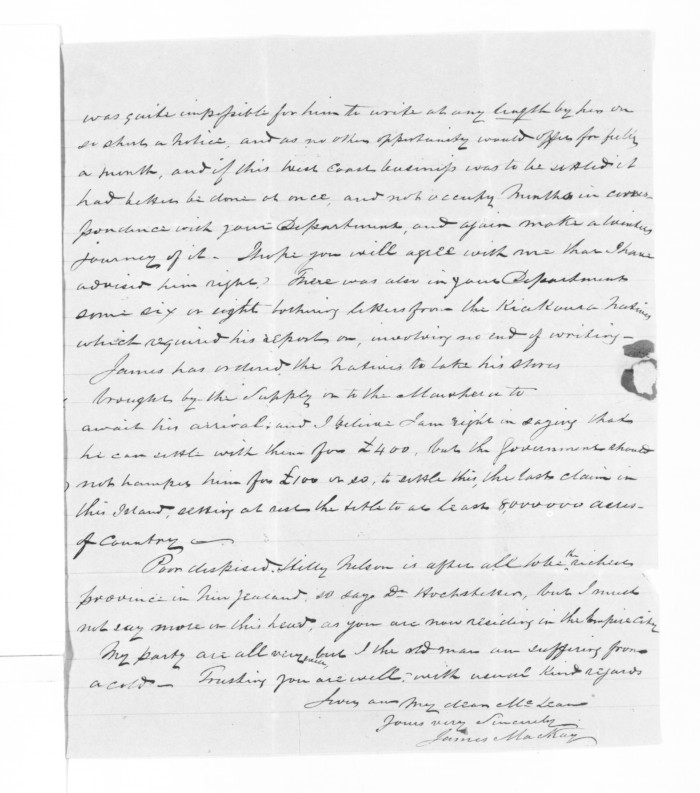 was quite impossible for him to write at any length by her on
so short a notice, and as no other opportunity would offer for fully
a month, and if this West Coast business was to be settled it
had better be done at once, and not occupy months in corres-
pondence with your Department, and again make a winters
journey of it - I hope you will agree with me that I have
advised him right? There was also in your Department
some six or eight bothering letters from the Kiakoura Natives
which required his report on, involving no end of writing -
James has ordered the Natives to take his stores
brought by the Supply on to the Mawhera to
await his arrival; and I believe I am right in saying that
he can settle with them for £400, but the Government should
not hamper him for £100 or so, to settle this, the last claim in
this Island, setting at rest the title to at least 8,000000 acres
of Country -
Poor dispised Hilly Nelson is after all to be the richest
province in New Zealand, so says Dr Hochstetter, but I must
not say more on this head, as you are now residing in the Empire City
My party are all very well, but I the old man am suffering from
a cold - Trusting you are well, with usual kind regards
Ever am My dear McLean
Yours very Sincerely
James MacKay